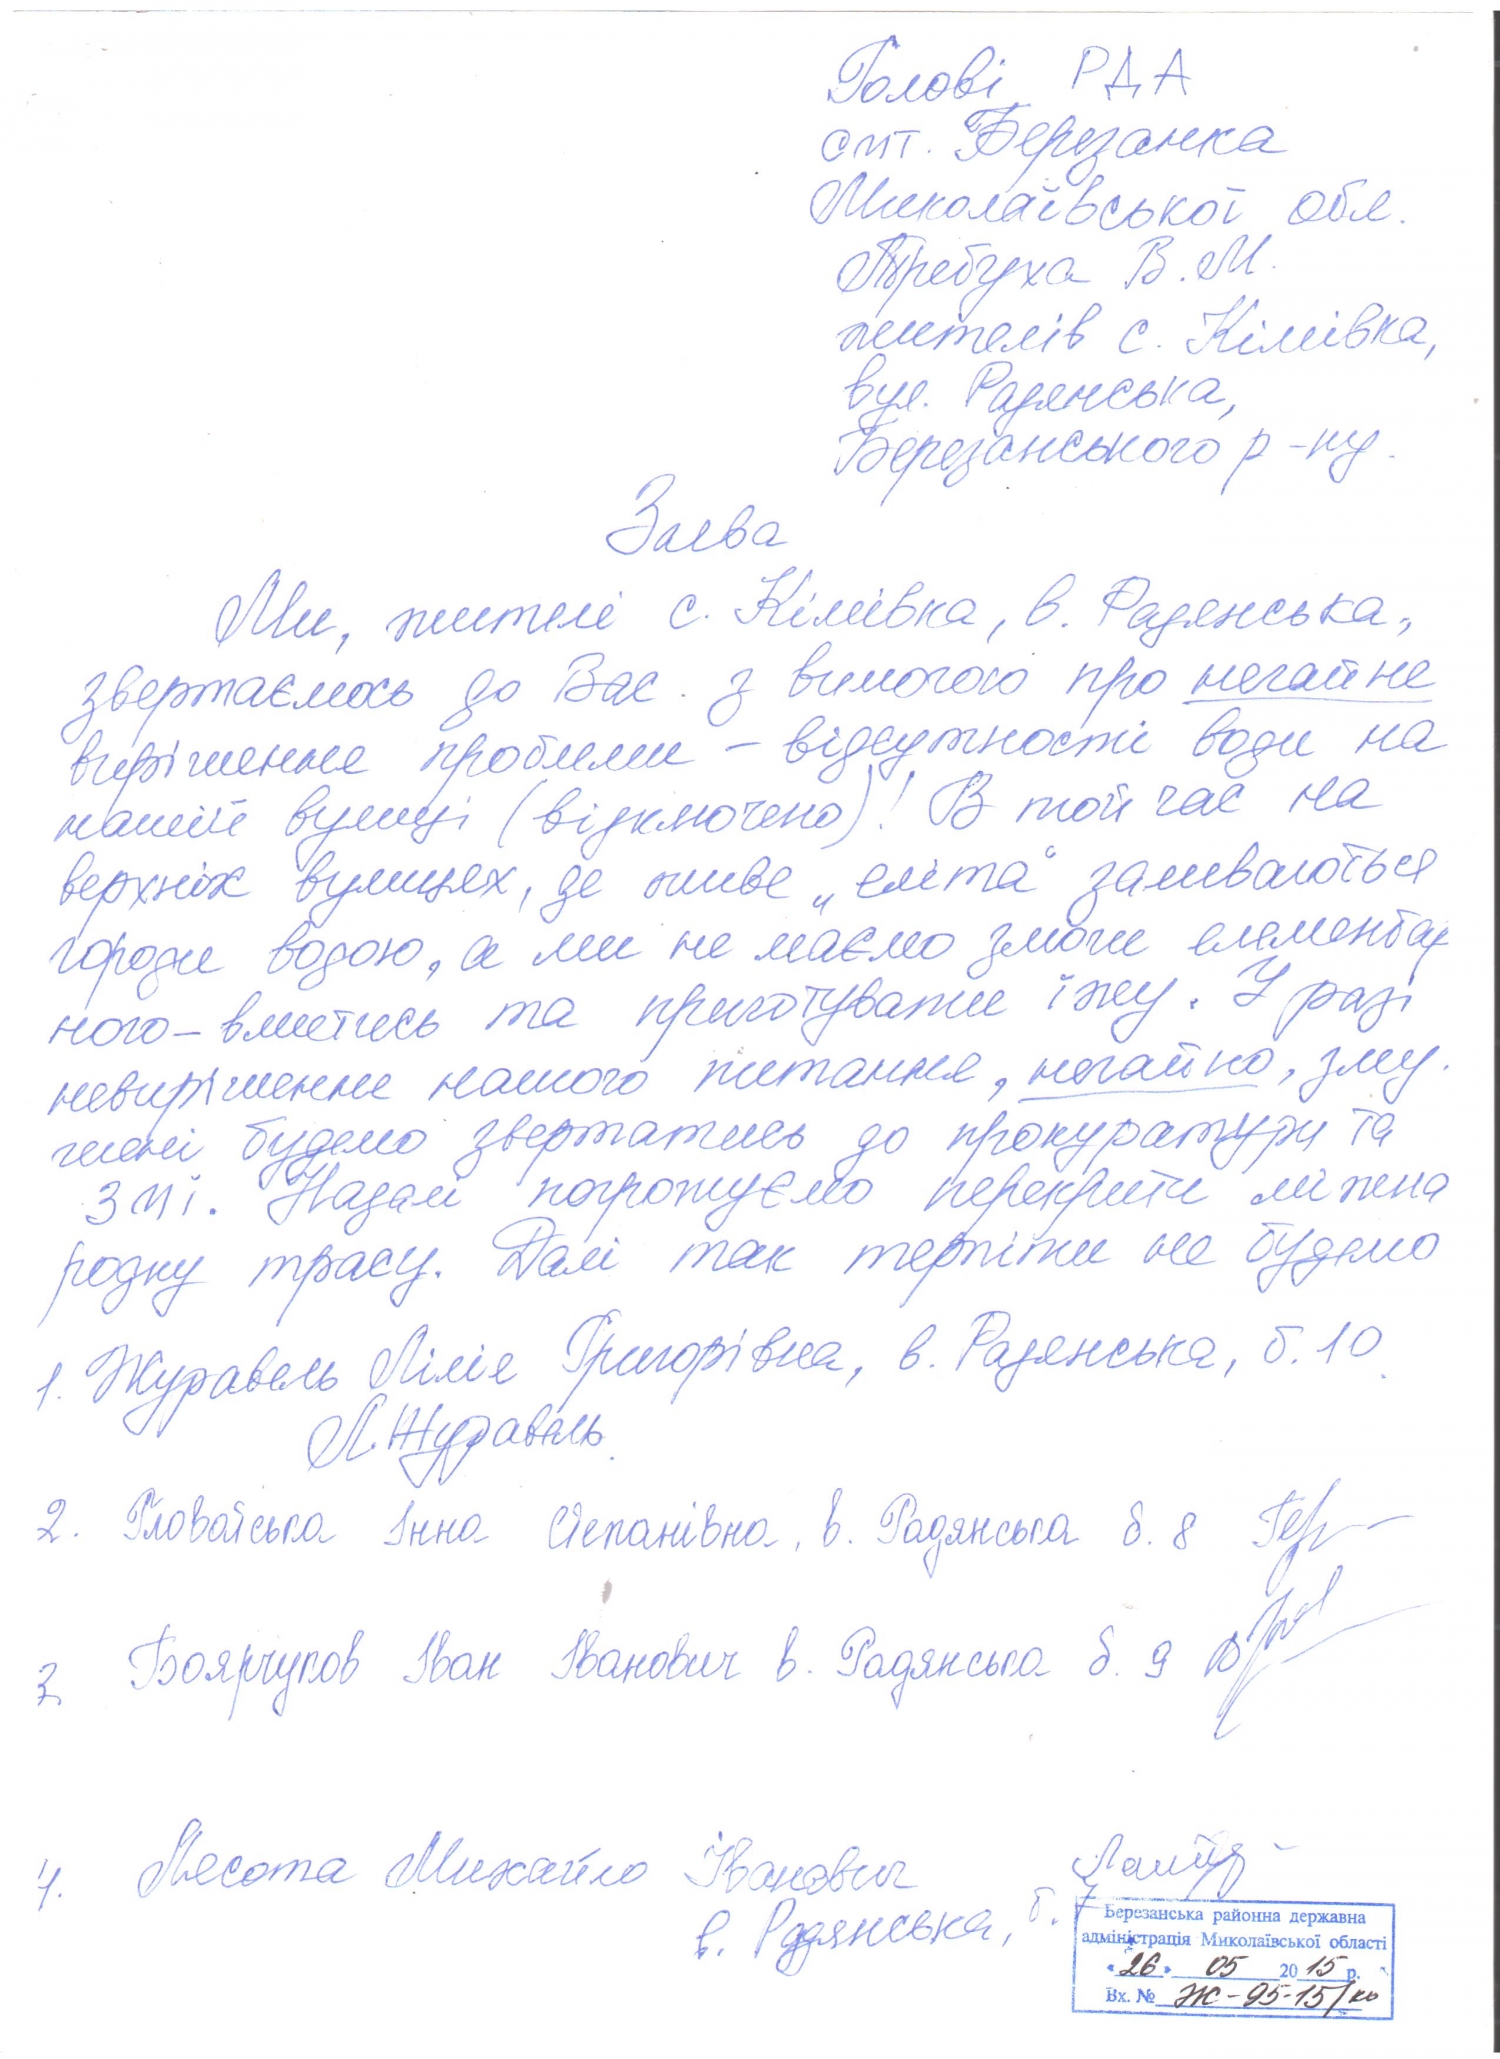 Голові РДА
смт. Березанка
Миколаївської обл.
Требуха В.М.
жителів с. Кімівка,
вул. Радянська,
Березанського р-ну.
Заява
Ми, жителі с. Кімівка, в. Радянська,
звертаємось до Вас з вимогою про негайне
вирішення проблеми – відсутності води на
нашій вулиці (відключено)! В той час на
верхніх вулицях, де живе „еліта“ заливаються
городи водою, а ми не маємо змоги елементар
ного – вмитись та приготувати їжу. У разі
невирішення нашого питання, негайно, зму.
шені будемо звертатись до прокуратури та
ЗМІ. Надалі погрожуємо перекрити міжна
родну трасу. Далі так терпіти не будемо
1. Журавель Лілія Григорівна, в. Радянська, б. 10.
Л. Журавель.
2. Гловаїська Інна Степанівна, в. Радянська б. 8
3 Боярчуков Іван Іванович в. Радянська б. 9
4. Лясота Михайло Іванович
в. Радянська, б. 7
Березанська районна державна
адміністрація Миколаївської області
«26» 05 2015 р.
Вх. № Ж-95-15/ко